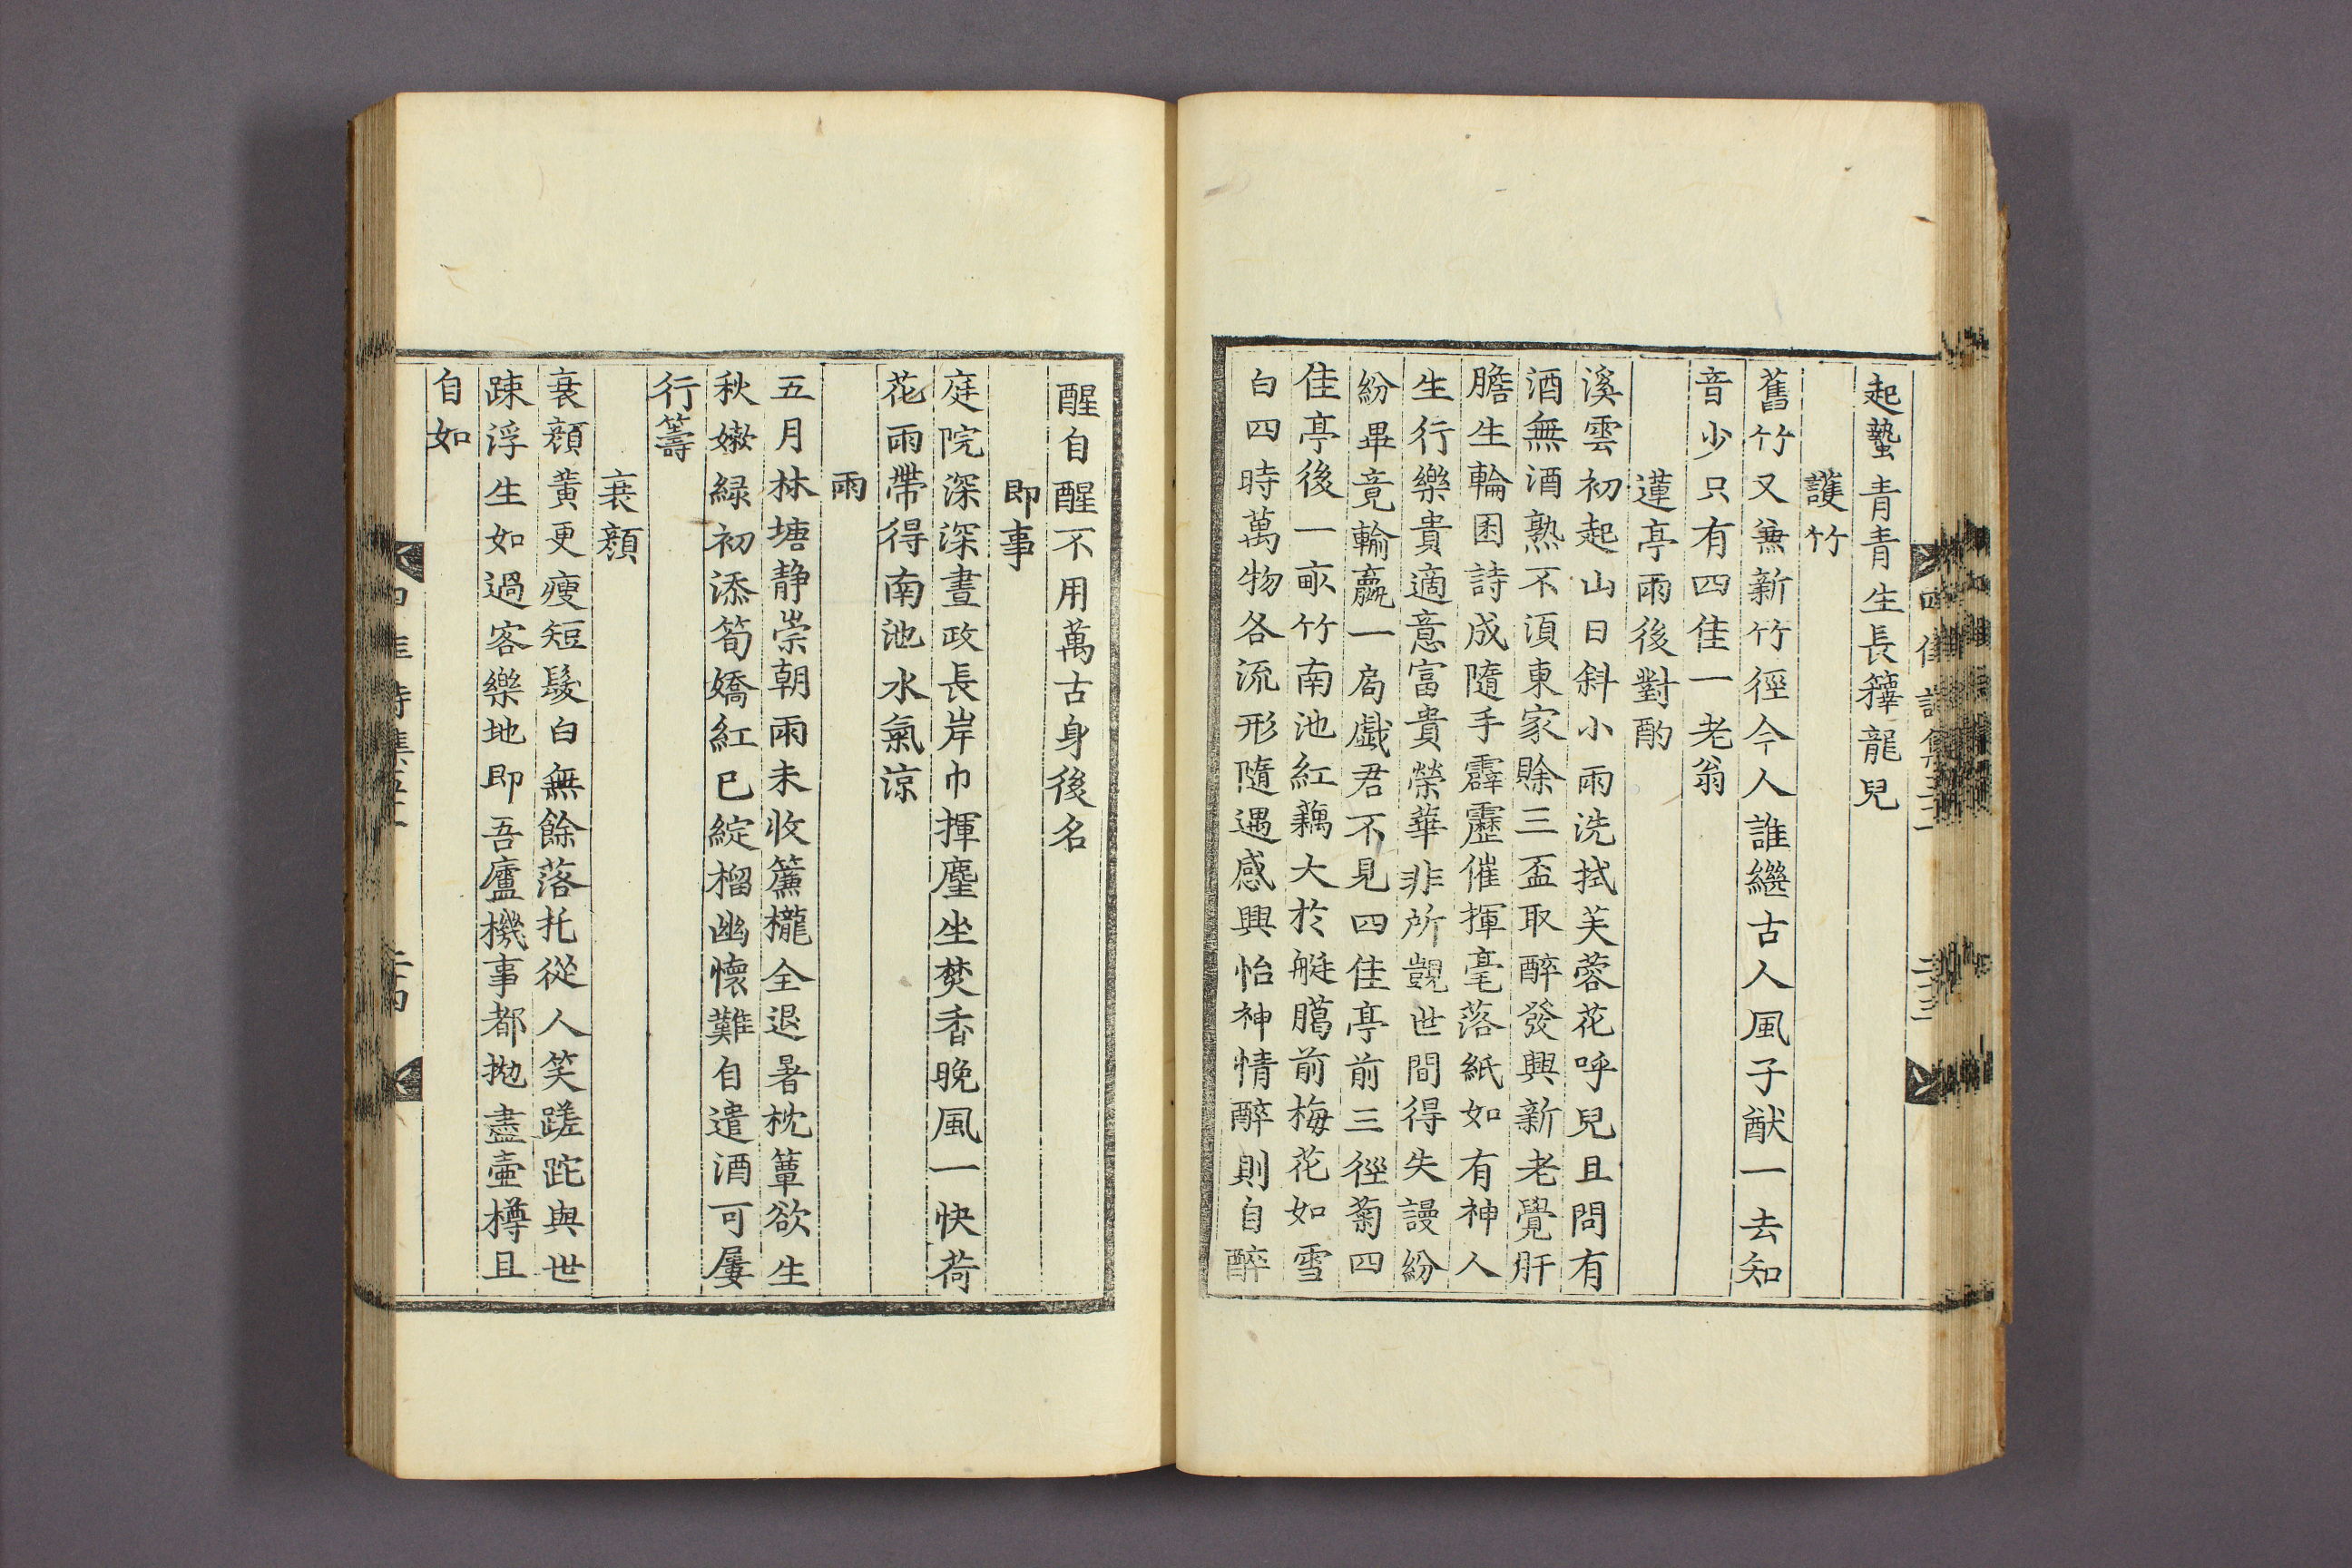 起蟄青青生長籜龍兒
護竹
舊竹又兼新竹徑今人誰繼古人風子猷一去知
音少只有四佳一老翁
蓮亭雨後對酌
溪雲初起山日斜小雨洗拭芙蓉花呼兒且問有
酒無酒熟不須東家賒三盃取醉發興新老覺肝
膽生輪囷詩成隨手霹靂催揮毫落紙如有神人
生行樂貴適意富貴榮華非所覬世間得失謾紛
紛畢竟輸贏一局戲君不見四佳亭前三徑菊四
佳亭後一畝竹南池紅藕大於艇牕前梅花如雪
白四時萬物各流形隨遇感興怡神情醉則自醉
醒自醒不用萬古身後名
即事
庭院深深晝政長岸巾揮麈坐焚香晚風一快荷
花雨帶得南池水氣涼
雨
五月林塘静崇朝雨未收簾櫳全退暑枕簟欲生
秋嫩緑初添筍嬌紅已綻榴幽懷難自遣酒可屢
行籌
衰顔
衰顔黃更瘦短髮白無餘落托從人笑蹉跎與世
踈浮生如過客樂地即吾廬機事都抛盡壷樽且
自如